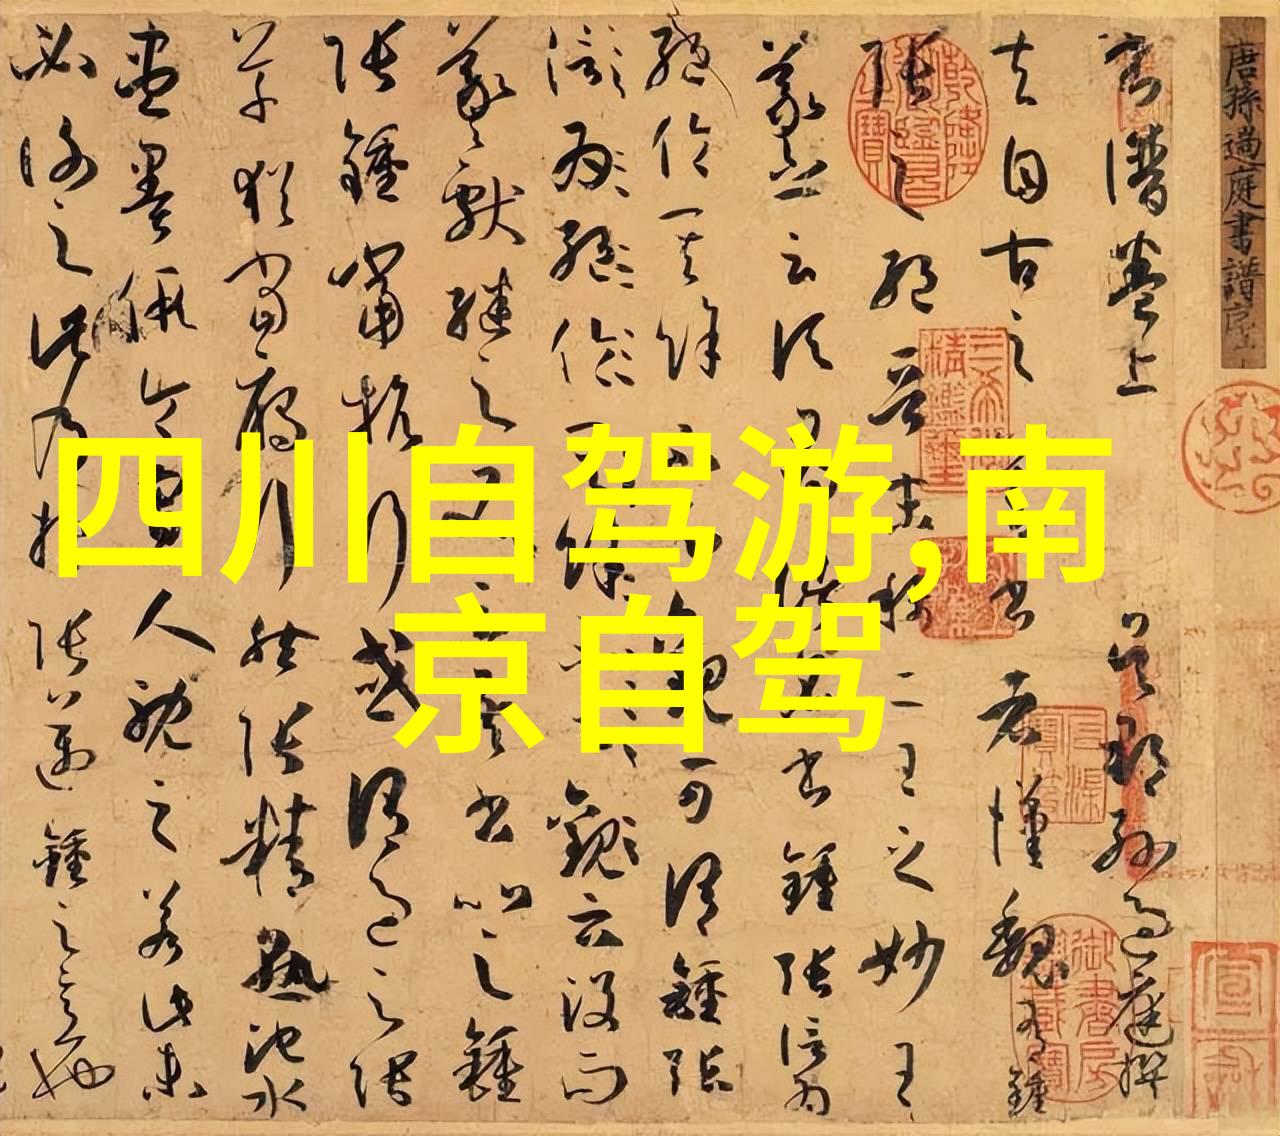 四川自驾游,南
京自驾
唐孫過庭書譜序上
書譜卷上 吳郡孫過庭撰
夫自古之善書者漢魏有鍾
張之絕晉末稱二王之妙王
羲之云頃尋諸名書鍾張信為
絕倫其餘不足觀可謂鍾張
絕倫其餘 觀云沒而
羲獻繼之又云吾書比之鍾
張鍾當抗行或謂過之張
草猶當雁行然張精熟池水
盡墨假令寡人耽之若此未
必謝之此乃推張邁鍾之意也
三希堂精鑑璽
御書房鑑藏寶